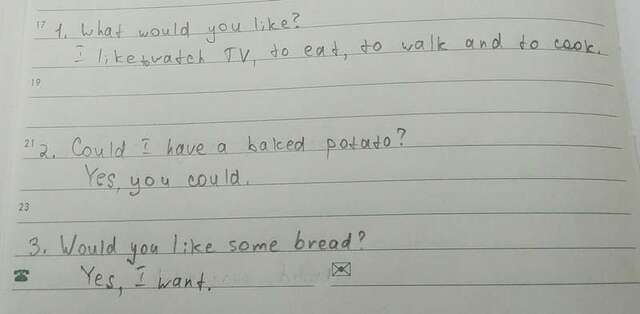 17 1. What would you like?
I like to watch TV, to eat, to walk and to cook.
19
21 2. Could I have a baked potato?
Yes, you could.
23
3. Would you like some bread?
Yes, I want.